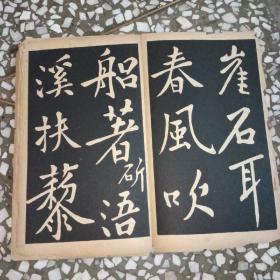 崖石耳
春風吹
船著斫浯
溪扶藜